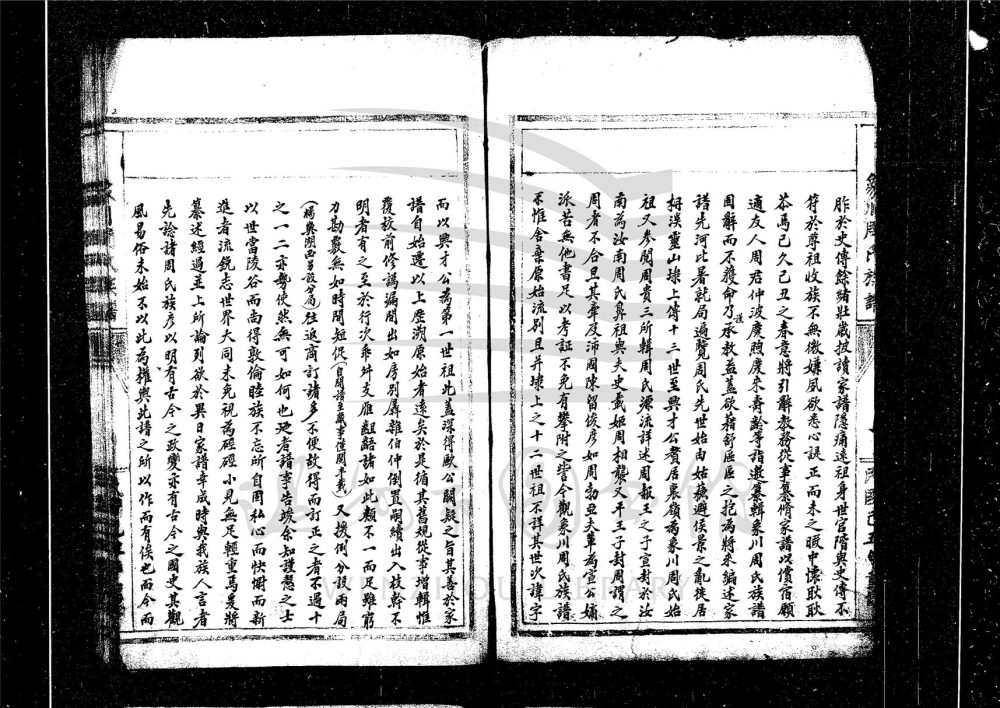 胙於史傳餘緒壯歲披讀家譜隱痛遠祖身世官階與史傳不
符於尊祖收族不無微嫌夙欲悉心諟正而未之暇中懷耿耿
茶馬己久己丑之春意將引辭教務從事纂脩家譜以償宿願
適友人周君仲波慶煦慶來壽齡等詣邀纂輯彖川周氏族譜
固辭而不獲命乃承教益蓋欲藉舒區區之抱為將來編述家
譜先河比暑就局遍覽周氏先世始由姑蘇避侯景之亂徙居
柯溪靈山埭上傳十三世至興才公贅居裏嶺為彖川周氏始
祖又參閱周貴三所輯周氏源流詳述周赧王之子宣封於汝
南為汝南周氏鼻祖與夫史載姬周相襲又平王子封周謂之
周者不合且其章及沛國陳留俊彥如周勃亞夫輩為宣公嫡
派苦無他書足以考証不免有攀附之訾今觀彖川周氏族譜
不惟舍棄原始流別且并埭上之十二世祖不詳其世次諱字
而以興才公為第一世祖此蓋深得歐公闕疑之旨其善於家
譜自始遷以上歷溯原始者遠矣於是循其舊規從事增輯惟
覆校前修譌漏間出如房別孱雜伯仲倒置嗣續出入枝幹不
明者有之至於行次乖舛支雁齟齬諸如此類不一而足雖窮
力勘覈無如時間短促(自開譜至歲事僅閱半載)又援例分設兩局
(楊奧湖西另設分局)往返商訂諸多不便故得而訂正之者不過十
之一二亦勢使然無可如何也迺者譜事告竣余知謹愨之士
以世當陵谷而尚得敦倫睦族不忘所自固私心而快慰而新
進者流銳志世界大同未免視為硜硜小見無足輕重焉爰將
纂述經過並上所論列欲於異日家譜幸成時與我族人言者
先諗諸周氏族彥以明有古今之政變亦有古今之國史其觀
風易俗未始不以此為權輿此譜之所以作而有俟也而今而